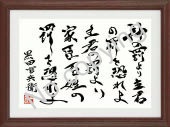 神の罰より主君
の罰を恐れよ
主君の罰より
家臣百姓の
罰を恐れよ
黒田官兵衛